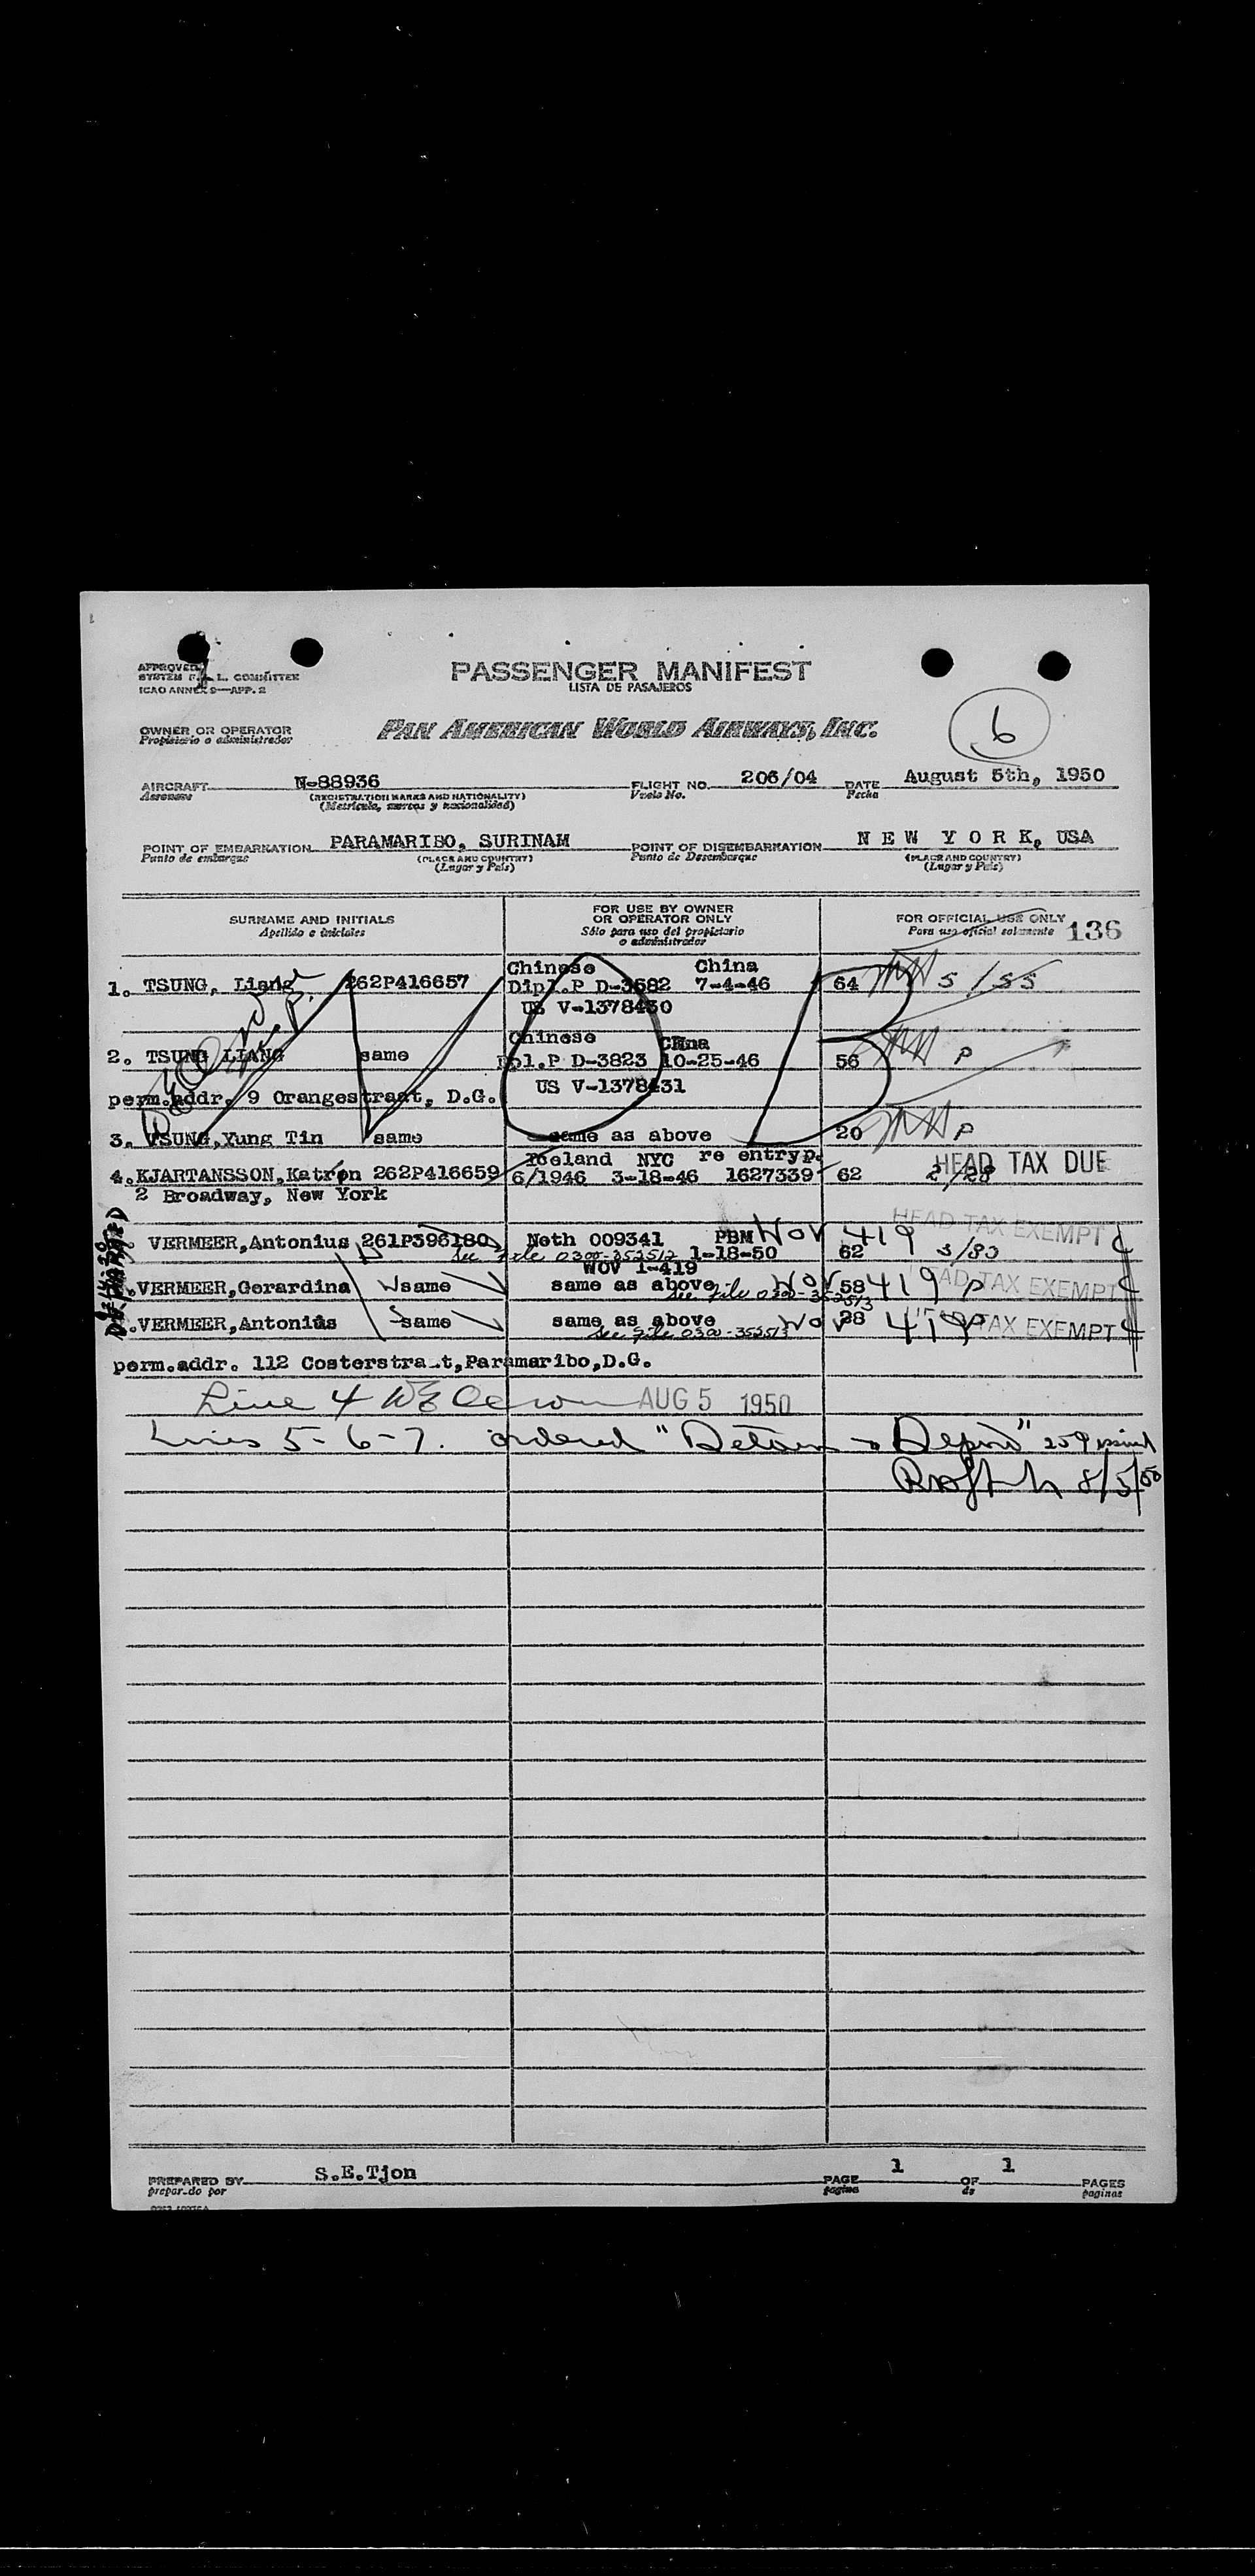 APPROVED
SYSTEM F.A.L. COMMITTEE
ICAO ANNEX 9—APP. 2
PASSENGER MANIFEST
LISTA DE PASAJEROS
6
OWNER OR OPERATOR
Propietario o administrador
PAN AMERICAN WORLD AIRWAYS, INC.
AIRCRAFT N-88936 FLIGHT NO. 206/04 DATE August 5th, 1950
Aeronave (REGISTRATION MARKS AND NATIONALITY) Vuelo No. Fecha
(Matrícula, marcas y nacionalidad)
POINT OF EMBARKATION PARAMARIBO, SURINAM POINT OF DISEMBARKATION N E W Y O R K, USA
Punto de embarque (PLACE AND COUNTRY) Punto de Desembarque (PLACE AND COUNTRY)
(Lugar y País) (Lugar y País)
SURNAME AND INITIALS FOR USE BY OWNER OR OPERATOR ONLY FOR OFFICIAL USE ONLY
Apellido e iniciales Sólo para uso del propietario o administrador Para uso oficial solamente 136
Chinese China
1. TSUNG, Liang 262P416657 Dipl.P D-3682 7-4-46 64 5/55
US V-1378430
NOB
Chinese China
2. TSUNG LIANG same Dpl.P D-3823 10-25-46 56 P
perm.addr. 9 Orangestraat, D.G. US V-1378431
3. TSUNG,Yung Tin same same as above 20 P
Iceland NYC re entryp. HEAD TAX DUE
4. KJARTANSSON,Katrin 262P416659 6/1946 3-18-46 1627339 62 2/28
2 Broadway, New York
HEAD TAX EXEMPT
VERMEER,Antonius 261P396180 Neth 009341 PBM WOV 419 3/80
See file 0300-352512 1-18-50 62
WOV 1-419
VERMEER,Gerardina same same as above WOV 58 419 P HEAD TAX EXEMPT
See file 0300-352513
VERMEER,Antonius same same as above WOV 28 419 P TAX EXEMPT
See file 0300-352513
perm.addr. 112 Costerstra t,Paramaribo,D.G.
Line 4 AUG 5 1950
Lines 5-6-7. ordered "Detain Deport" 259
8/5/50
PREPARED BY S.E.Tjon PAGE 1 OF 1 PAGES
preparado por pagina de paginas